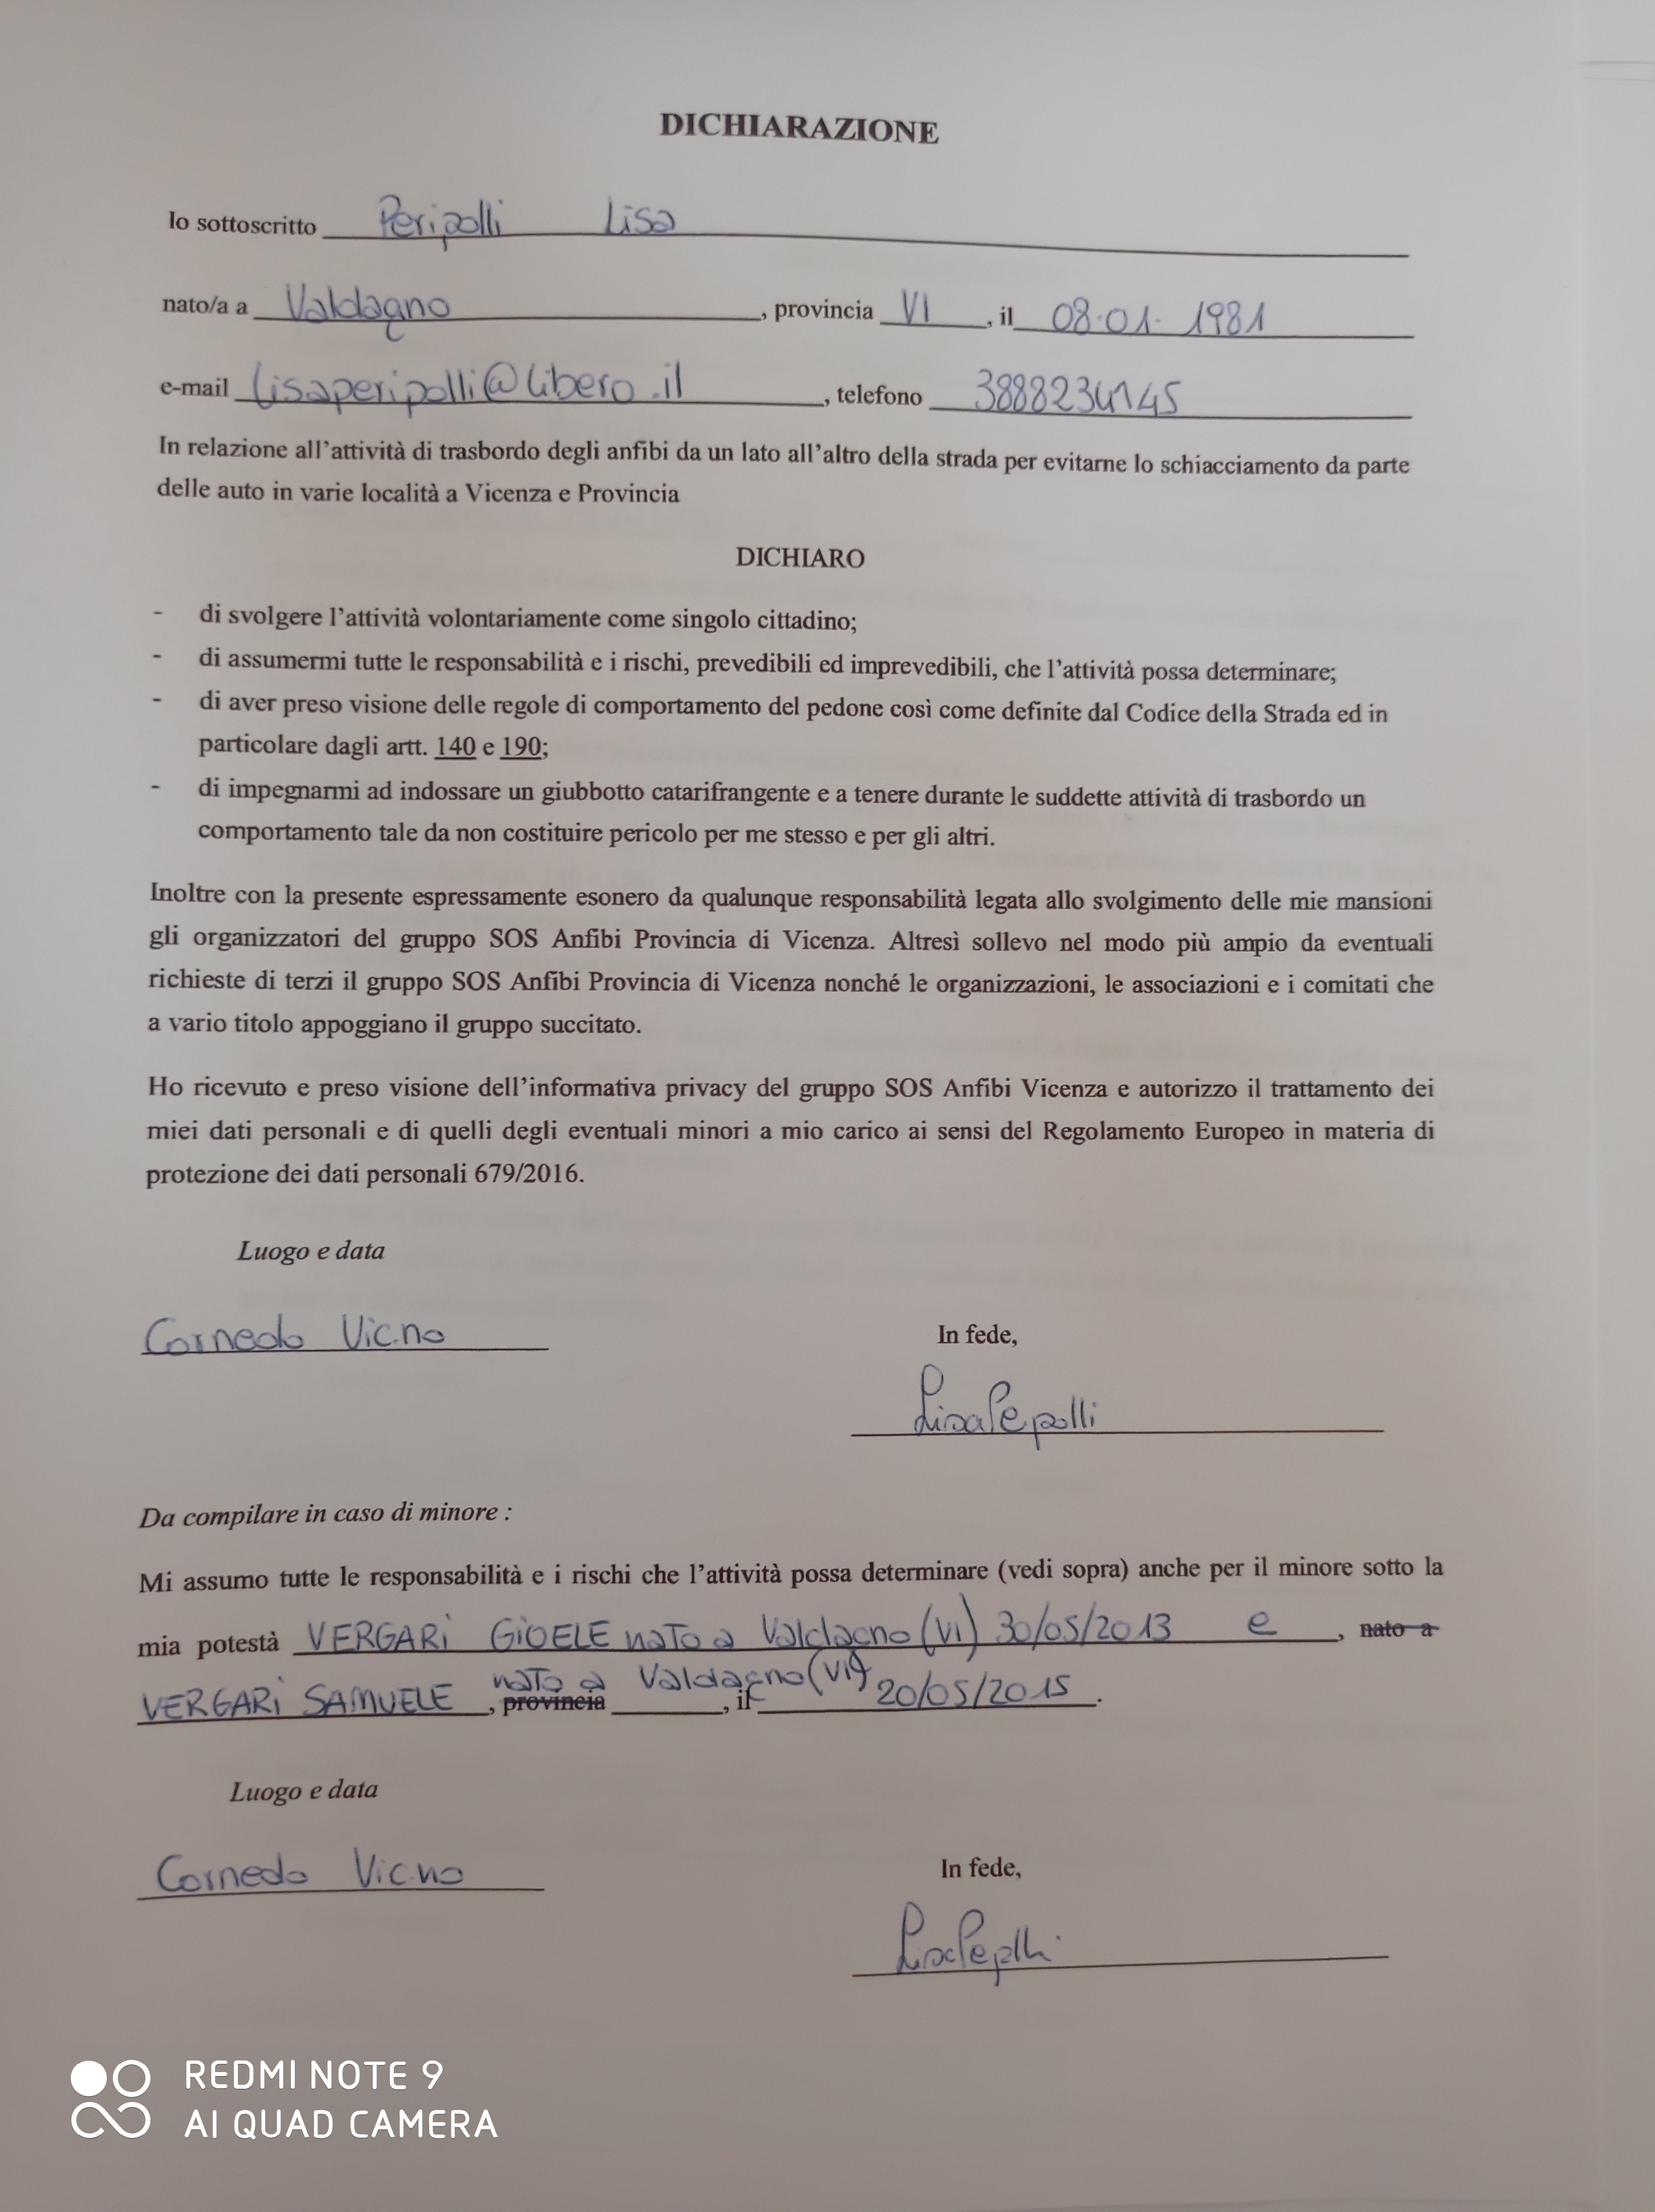 DICHIARAZIONE
Io sottoscritto Peripolli Lisa
nato/a a Valdagno, provincia VI, il 08.01.1981
e-mail lisaperipolli@libero.it, telefono 3888234145
In relazione all'attività di trasbordo degli anfibi da un lato all'altro della strada per evitarne lo schiacciamento da parte
delle auto in varie località a Vicenza e Provincia
DICHIARO
- di svolgere l'attività volontariamente come singolo cittadino;
- di assumermi tutte le responsabilità e i rischi, prevedibili ed imprevedibili, che l'attività possa determinare;
- di aver preso visione delle regole di comportamento del pedone così come definite dal Codice della Strada ed in
particolare dagli artt. 140 e 190;
- di impegnarmi ad indossare un giubbotto catarifrangente e a tenere durante le suddette attività di trasbordo un
comportamento tale da non costituire pericolo per me stesso e per gli altri.
Inoltre con la presente espressamente esonero da qualunque responsabilità legata allo svolgimento delle mie mansioni
gli organizzatori del gruppo SOS Anfibi Provincia di Vicenza. Altresì sollevo nel modo più ampio da eventuali
richieste di terzi il gruppo SOS Anfibi Provincia di Vicenza nonché le organizzazioni, le associazioni e i comitati che
a vario titolo appoggiano il gruppo succitato.
Ho ricevuto e preso visione dell'informativa privacy del gruppo SOS Anfibi Vicenza e autorizzo il trattamento dei
miei dati personali e di quelli degli eventuali minori a mio carico ai sensi del Regolamento Europeo in materia di
protezione dei dati personali 679/2016.
Luogo e data
Cornedo Vic.no
In fede,
Lisa Pepolli
Da compilare in caso di minore :
Mi assumo tutte le responsabilità e i rischi che l'attività possa determinare (vedi sopra) anche per il minore sotto la
mia potestà VERGARI GIOELE nato a Valdagno (VI) 30/05/2013 e, nato a
VERGARI SAMUELE, provincia nato a Valdagno (VI), il 20/05/2015.
Luogo e data
Cornedo Vic.no
In fede,
REDMI NOTE 9
AI QUAD CAMERA